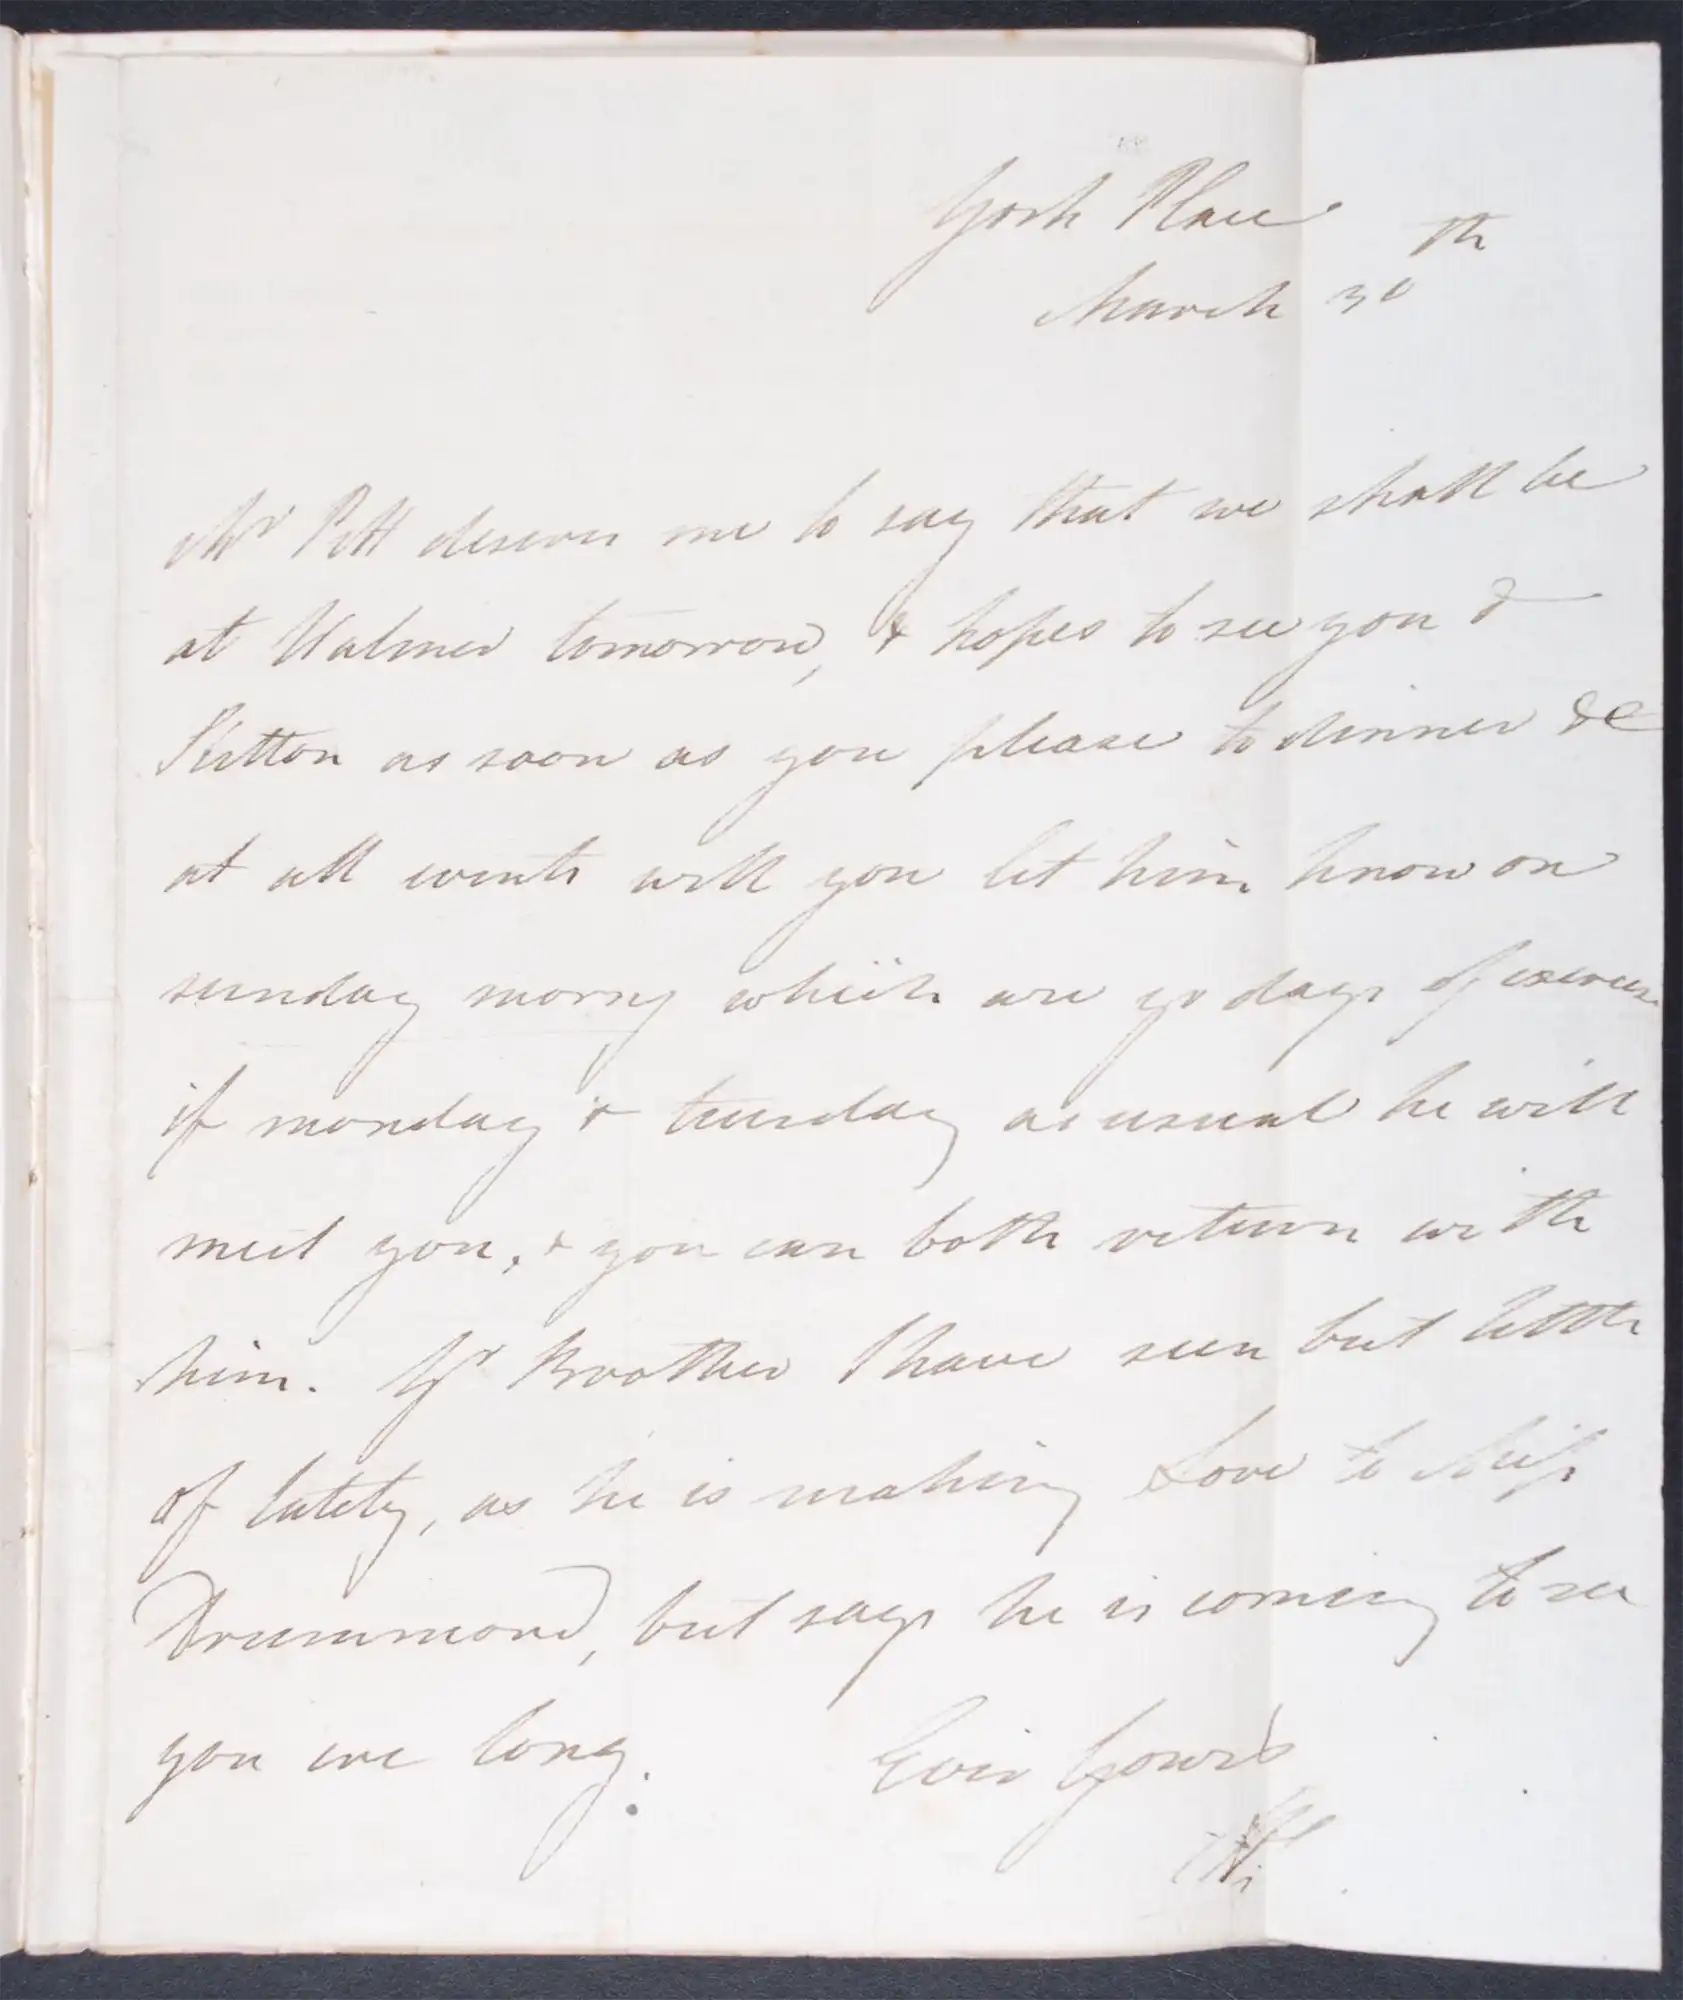 York Place
March 30th
Mr Pitt desires me to say that we shall be
at Walmer tomorrow, & hopes to see you &
Sutton as soon as you please to dinner &c
at all events will you let him know on
sunday morng which are yr days of exercise
if monday & tuesday as usual he will
meet you, & you can both return with
him. Yr Brother I have seen but little
of lately, as he is making Love to Miss
Drummond, but says he is coming to see
you ere long.    Ever Yours